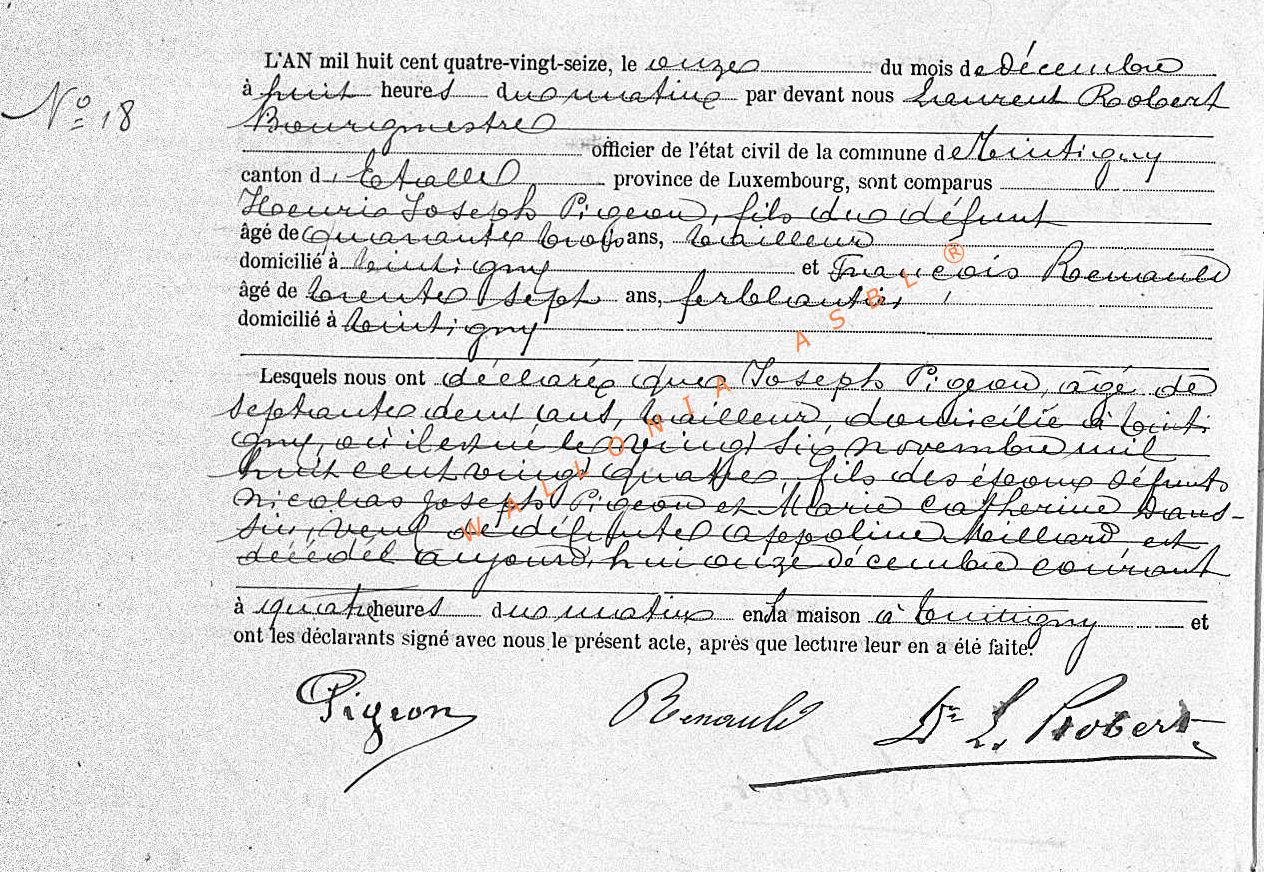 L'AN mil huit cent quatre-vingt-seize, le onze du mois de décembre
N° 18
à huit heures du matin par devant nous Laurent Robert
Bourgmestre
officier de l'état civil de la commune de Tintigny
canton d' Etalle province de Luxembourg, sont comparus
Henri Joseph Pigeon, fils du défunt
âgé de quarante trois ans, tailleur
domicilié à tintigny et François Renauld
âgé de trente sept ans, ferblantier
domicilié à tintigny
Lesquels nous ont déclaré que Joseph Pigeon, âgé de
septante deux ans, tailleur, domicilié à tinti
gny, où il est né le vingt six novembre mil
huit cent vingt quatre, fils des époux défunts
Nicolas Joseph Pigeon et Marie Catherine
veuf de défunte Appoline est
décédé aujourd'hui onze décembre courant
à quatre heures du matin en la maison à tintigny et
ont les déclarants signé avec nous le présent acte, après que lecture leur en a été faite.
Pigeon Renauld Dr L. Robert
WALLONIA ASBL ®